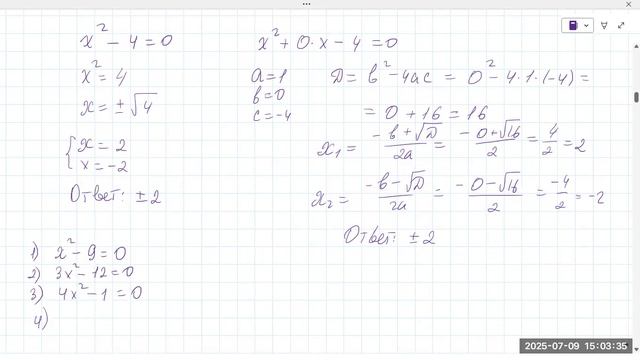 x² − 4 = 0
x² = 4
x = ± √4
{ x = 2
x = −2
Ответ: ± 2
x² + 0 · x − 4 = 0
a = 1
b = 0
c = −4
D = b² − 4ac = 0² − 4 · 1 · (−4) =
= 0 + 16 = 16
x₁ = (−b + √D)/2a = (−0 + √16)/2 = 4/2 = 2
x₂ = (−b − √D)/2a = (−0 − √16)/2 = −4/2 = −2
Ответ: ± 2
1) x² − 9 = 0
2) 3x² − 12 = 0
3) 4x² − 1 = 0
4)
2025-07-09 15:03:35